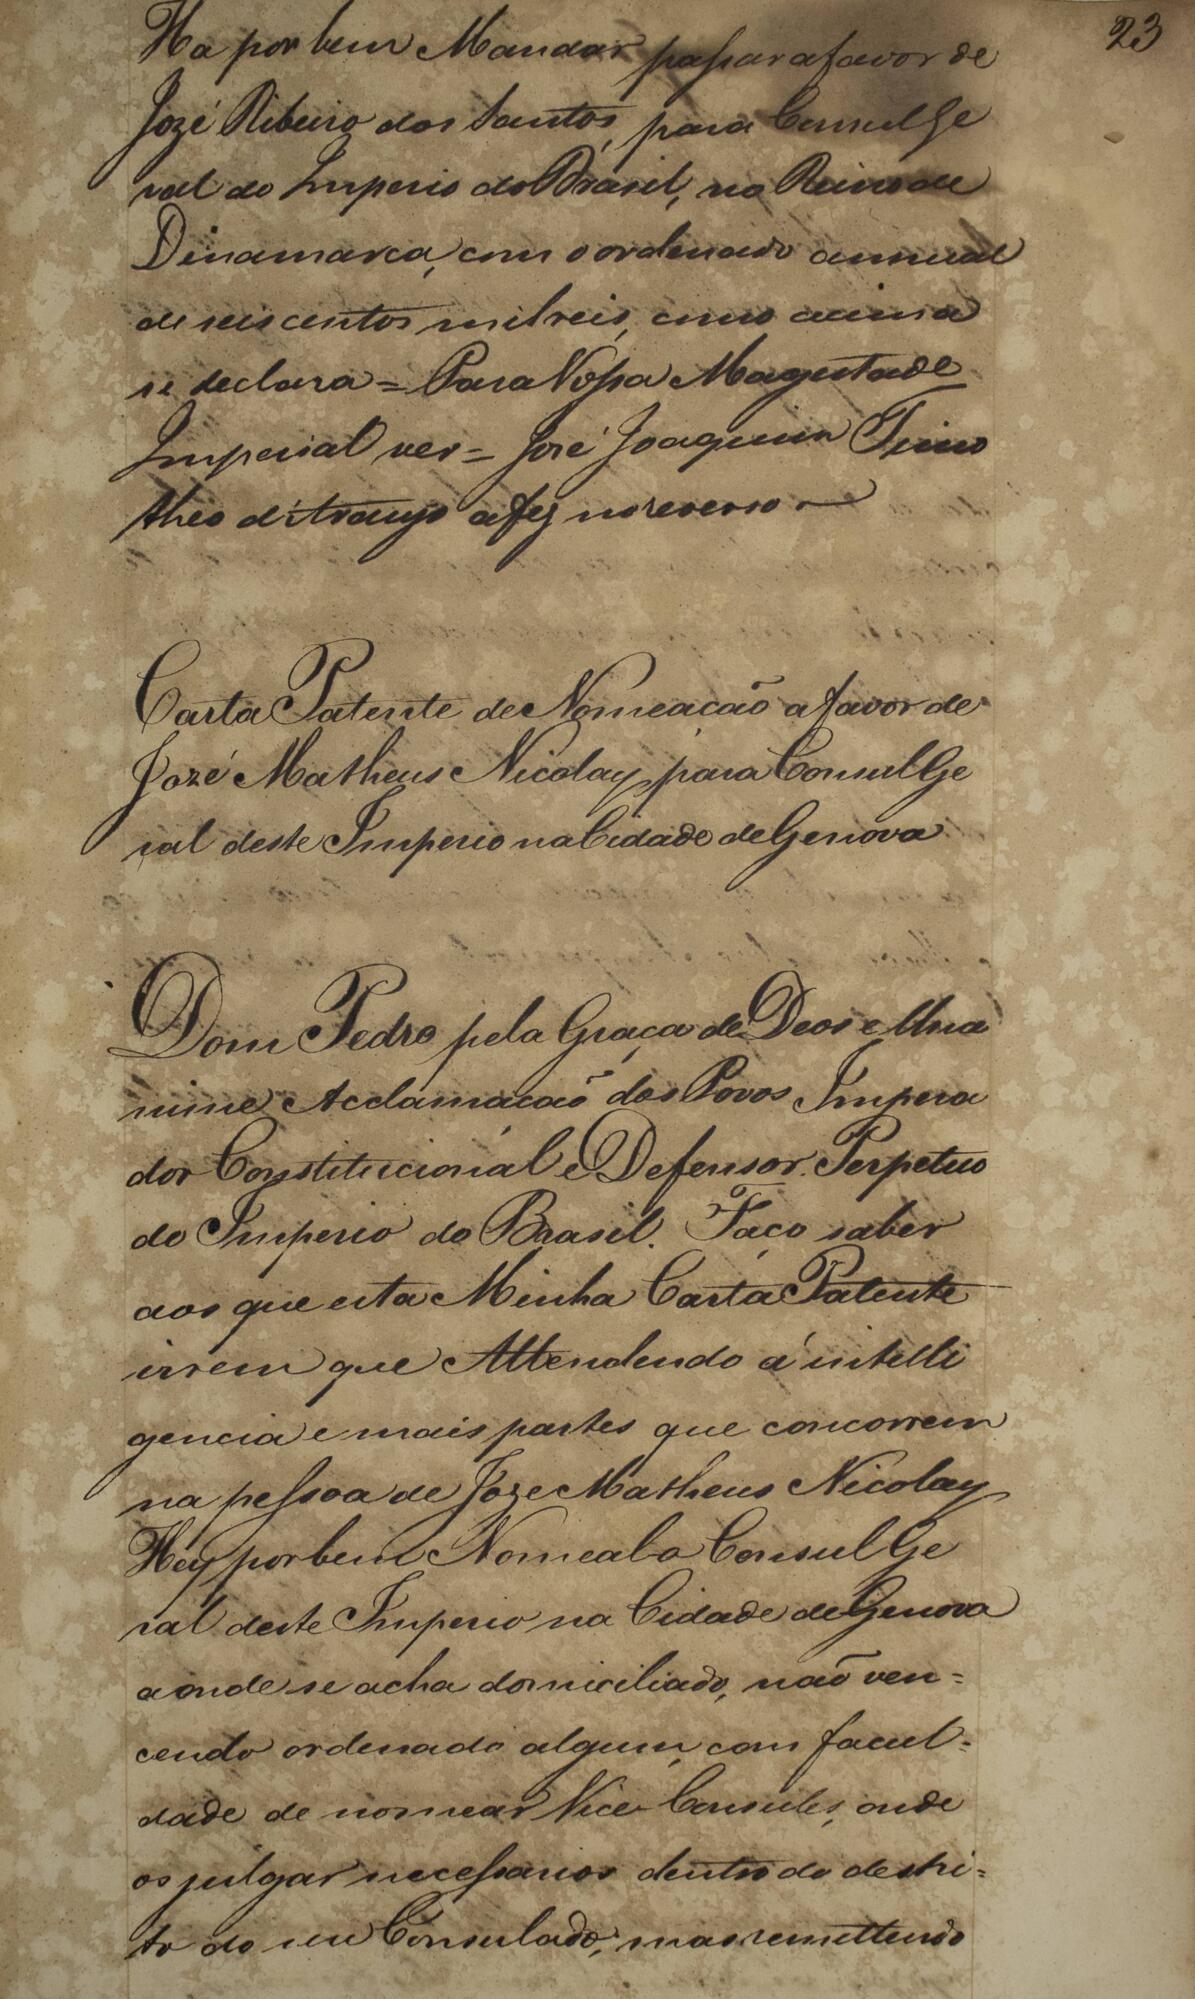 23
Ha por bem Mandar passar a favor de
Jozé Ribeiro dos Santos, para Consul Ge
ral do Imperio do Brasil, no Reino de
Dinamarca, com o ordenado annual
de seis centos mil reis, como acima
se declara = Para Vossa Magestade
Imperial ver = José Joaquim Timo
theo d'Araujo a fez no reverso
Carta Patente de Nomeacão a favor de
Jozé Matheus Nicolay, para Consul Ge
ral deste Imperio na Cidade de Genova
Dom Pedro pela Graça de Deos e Una
nime Acclamacão dos Povos Impera
dor Constitucional e Defensor Perpetuo
do Imperio do Brasil. Faço saber
aos que esta Minha Carta Patente
virem que Attendendo á intelli
gencia e mais partes que concorrem
na pessoa de Joze Matheus Nicolay
Hey por bem Nomealo Consul Ge
ral deste Imperio na Cidade de Genova
aonde se acha domiciliado, não ven=
cendo ordenado algum, com facul=
dade de nomear Vice Consules, onde
os julgar necessarios dentro do destri=
to do seu Consulado, mas remettendo